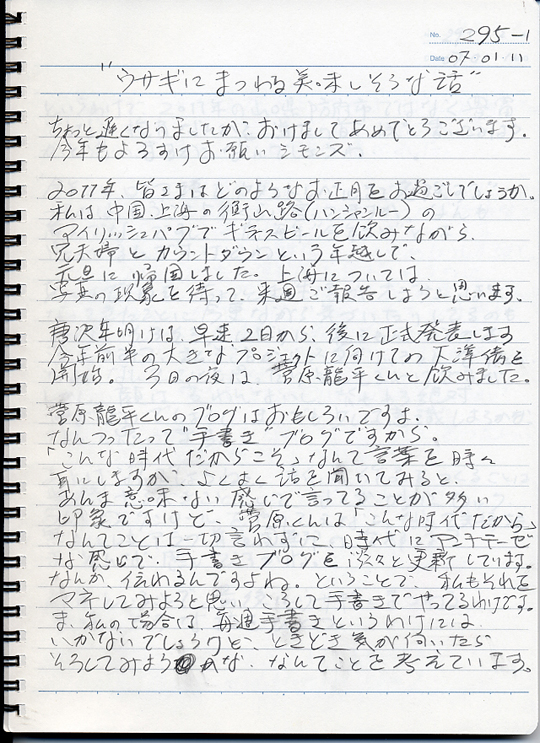 No. 295-1
Date 07・01・11
"ウサギにまつわる美味しそうな話"
ちょっと遅くなりましたが、あけましておめでとうございます。
今年もよろすけお願いシモンズ。
2011年、皆さまはどのようなお正月をお過ごしでしょうか。
私は、中国・上海の衡山路(ハンシャンルー)の
アイリッシュパブでギネスビールを飲みながら、
兄夫婦とカウントダウンという年越しで、
元旦に帰国しました。上海については、
写真の現象を待って、来週ご報告しようと思います。
唐沢年明けは、早速2日から、後に正式発表します
今年前半の大きなプロジェクトに向けての大準備を
開始。3日の夜は、菅原龍平くんと飲みました。
菅原龍平くんのブログはおもしろいですよ。
なんつったって"手書き"ブログですから。
「こんな時代だからこそ」なんて言葉を時々
耳にしますが、よくよく話を聞いてみると、
あんま意味ない感じで言ってることが多い
印象ですけど、菅原くんは「こんな時代だから」
なんてことは一切言わずに、時代にアンチテーゼ
な感じで、手書きブログを淡々と更新しています。
なんか、伝わるんですよね。ということで、私もそれを
マネしてみようと思い、こうして手書きでやってるわけです。
ま、私の場合は、毎週手書きというわけには
いかないでしょうけど、ときどき気が向いたら
そうしてみようかな、なんてことを考えています。